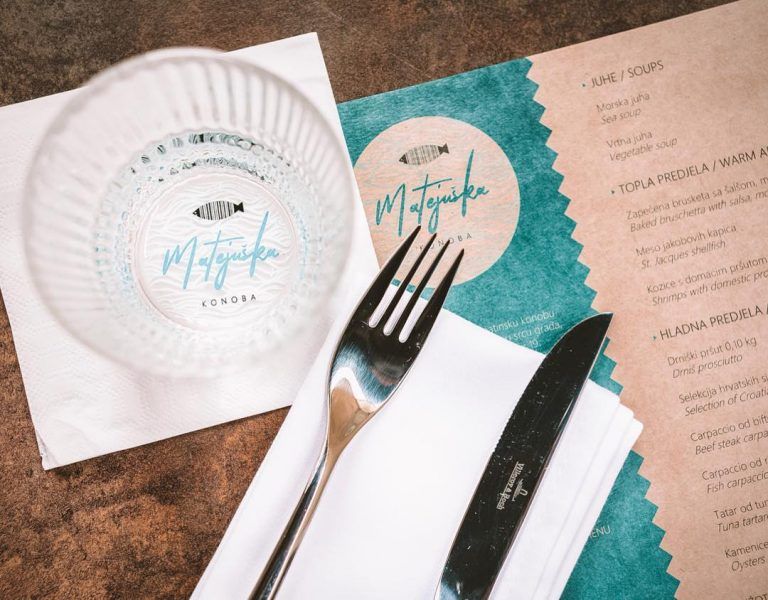 Matejuška
KONOBA
Matejuška
KONOBA
tinsku konobu
srcu grada,
MENU
Villeroy & Boch
JUHE / SOUPS
Morska juha
Sea soup
Vrtna juha
Vegetable soup
TOPLA PREDJELA / WARM
Zapečena brusketa sa šalšom,
Baked bruschetta with salsa,
Meso jakobovih kapica
St. Jacques shellfish
Kozice s domaćim pršutom
Shrimps with domestic
HLADNA PREDJELA /
Drniški pršut 0,10 kg
Drniš prosciutto
Selekcija hrvatskih
Selection of
Carpaccio od
Beef steak
Carpaccio od
Fish carpaccio
Tatar od
Tuna
Kamenice
Oysters